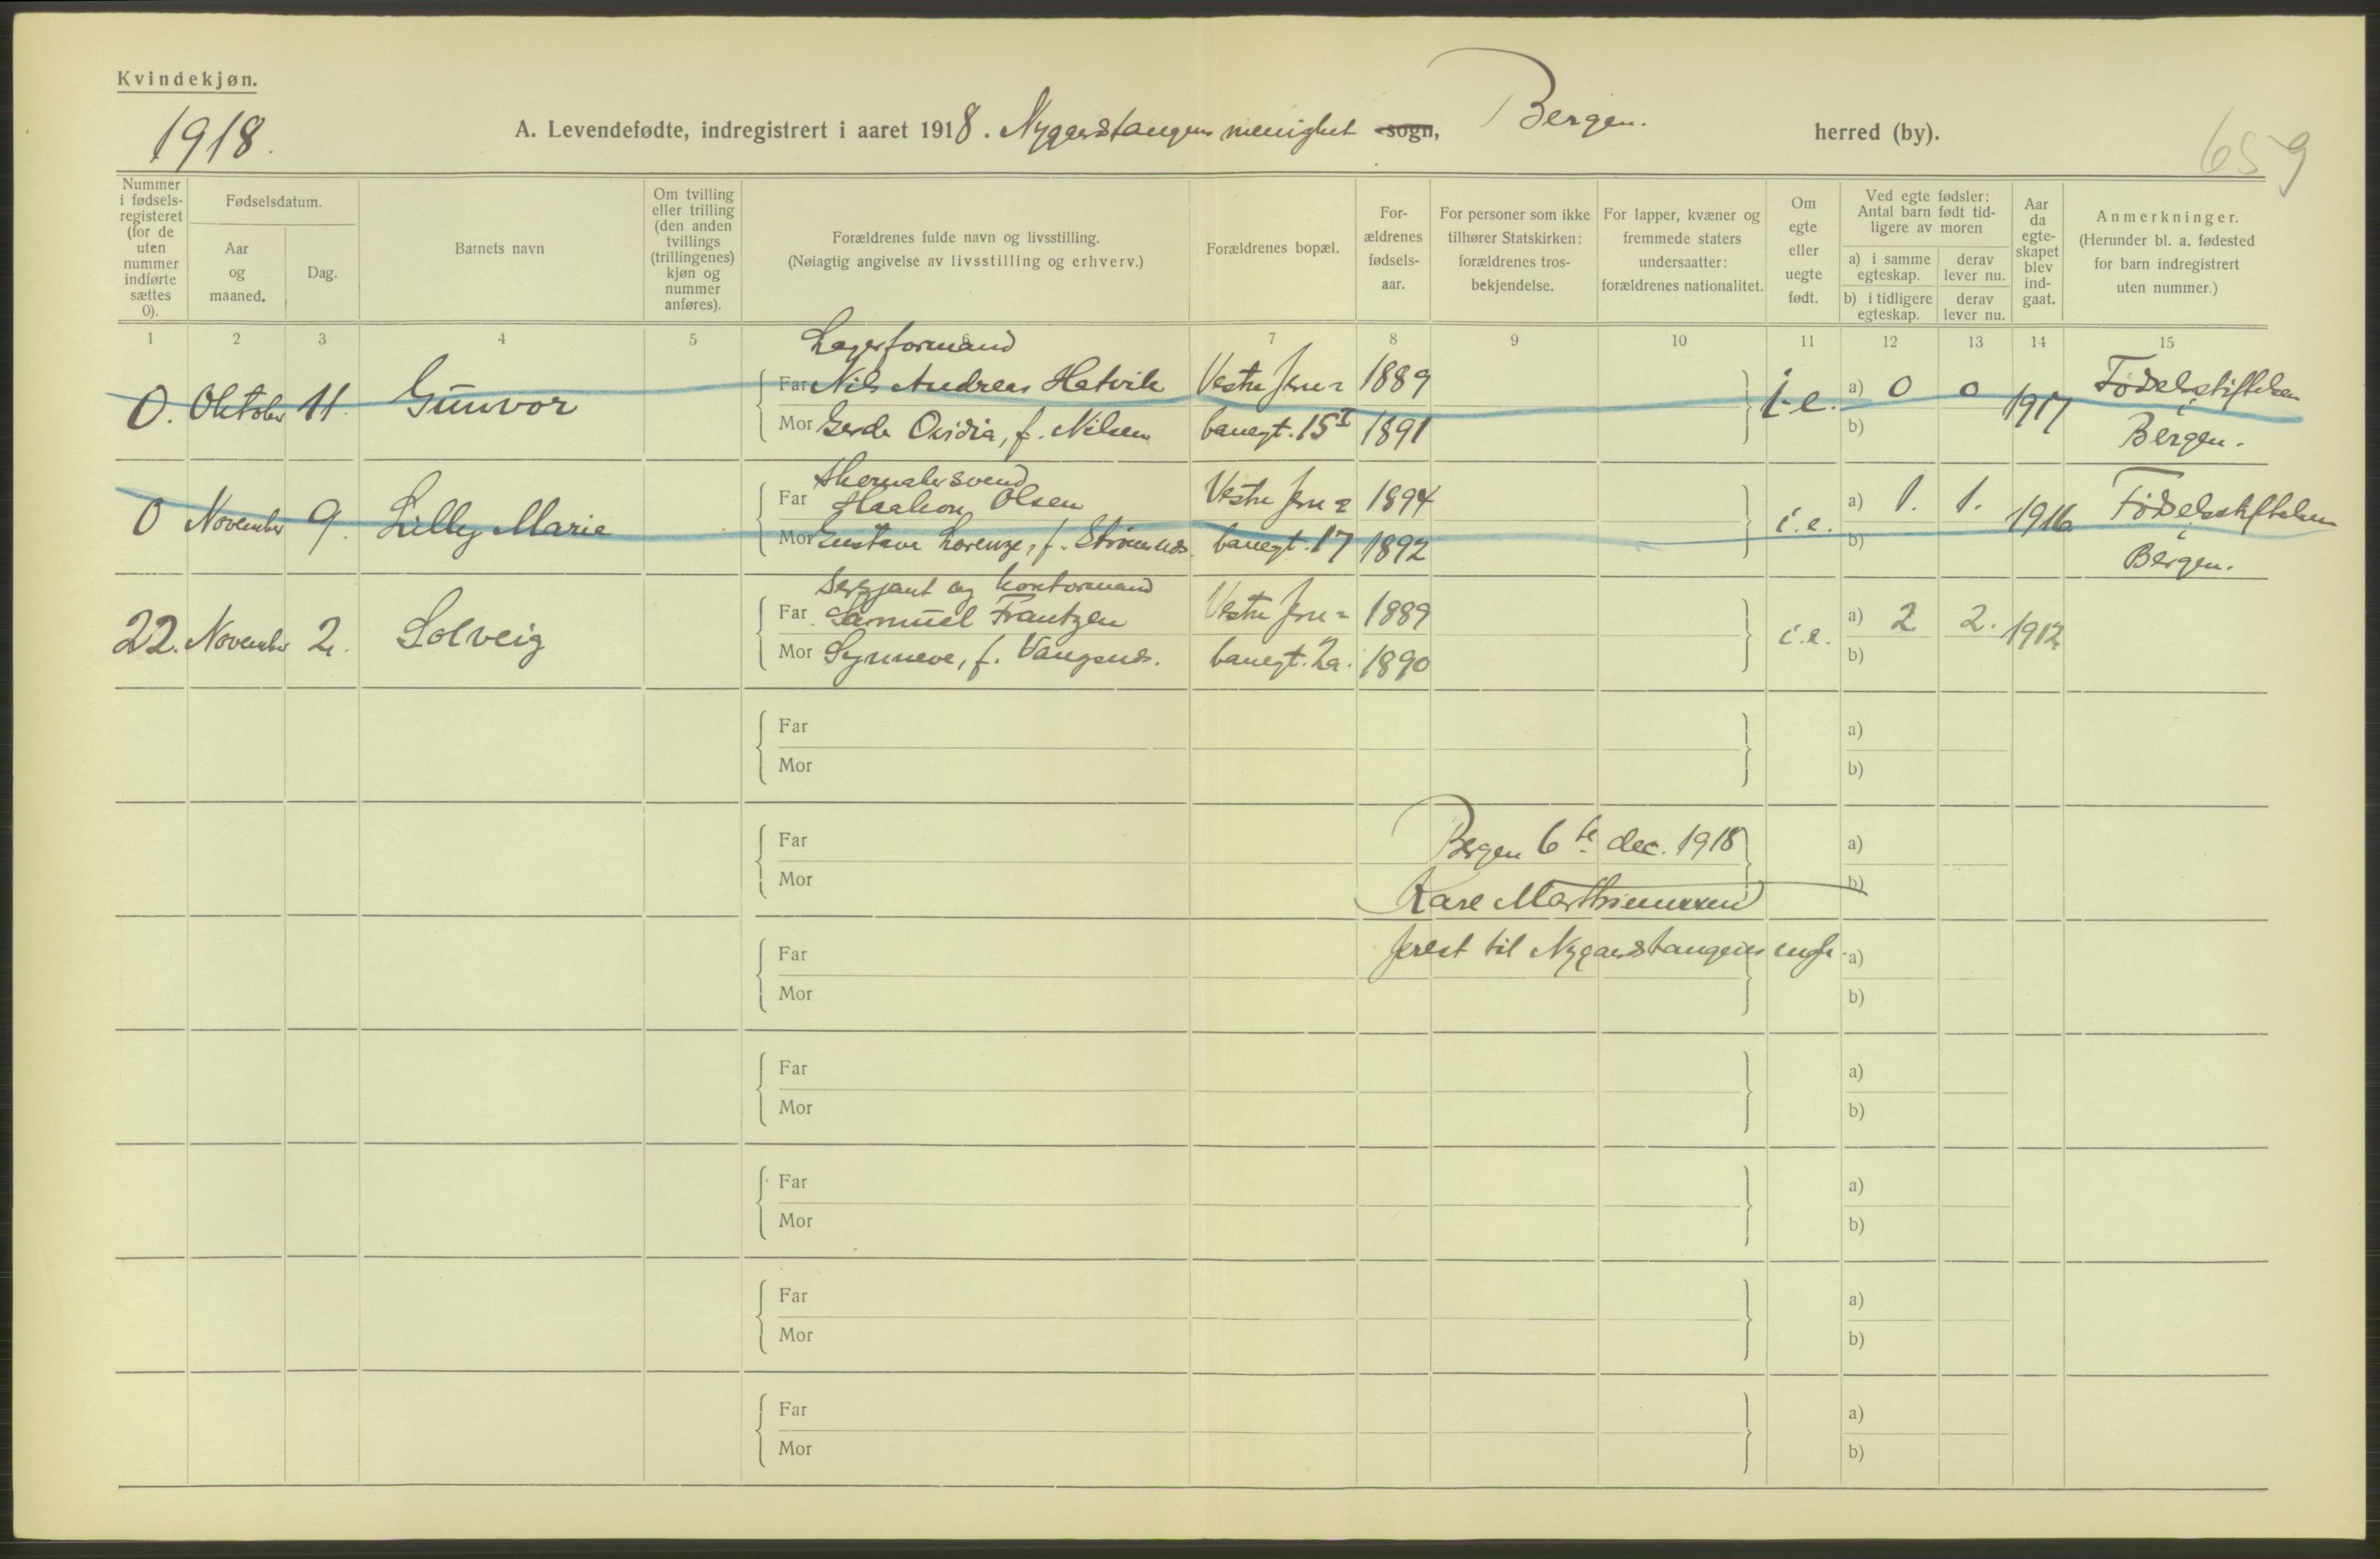 Kvindekjøn.
1918.
A. Levendefødte, indregistrert i aaret 1918. Nygaardstangens menighet sogn, Bergen. herred (by).
659
Nummer i fødsels-registeret (for de uten nummer indførte sættes 0).
Fødselsdatum.
Aar og maaned.
Dag.
Barnets navn
Om tvilling eller trilling (den anden tvillings (trillingenes) kjøn og nummer anføres).
Forældrenes fulde navn og livsstilling.
(Nøiagtig angivelse av livsstilling og erhverv.)
Forældrenes bopæl.
For-ældrenes fødsels-aar.
For personer som ikke tilhører Statskirken: forældrenes tros-bekjendelse.
For lapper, kvæner og fremmede staters undersaatter: forældrenes nationalitet.
Om egte eller uegte født.
Ved egte fødsler: Antal barn født tid-ligere av moren
a) i samme egteskap.
derav lever nu.
b) i tidligere egteskap.
derav lever nu.
Aar da egte-skapet blev ind-gaat.
Anmerkninger.
(Herunder bl. a. fødested for barn indregistrert uten nummer.)
1 2 3 4 5 6 7 8 9 10 11 12 13 14 15
Lagerformand
0. Oktober 11. Gunvor Far Nils Andreas Hatvik Vestre Jern= 1889 i.e. a) 0 0 1917 Fødselsstiftelsen
Mor Gerda Ovidia, f. Nilsen banegt. 15 I 1891 b) Bergen.
Skomakersvend
0 November 9. Lilly Marie Far Haakon Olsen Vestre Jern= 1894 i.e. a) 1. 1. 1916 Fødselsstiftelsen
Mor Gustava Lorenze, f. Strømsnes. banegt. 17 1892 b) Bergen.
Sersjant og kontormand
22. November 2. Solveig Far Samuel Frantzen Vestre Jern= 1889 i.e. a) 2 2. 1912
Mor Synneve, f. Vangsnes. banegt. 2a. 1890 b)
Far a)
Mor b)
Far Bergen 6te dec. 1918 a)
Mor Kare Mathiesen b)
Far prest til Nygaardstangens mgh. a)
Mor b)
Far a)
Mor b)
Far a)
Mor b)
Far a)
Mor b)
Far a)
Mor b)